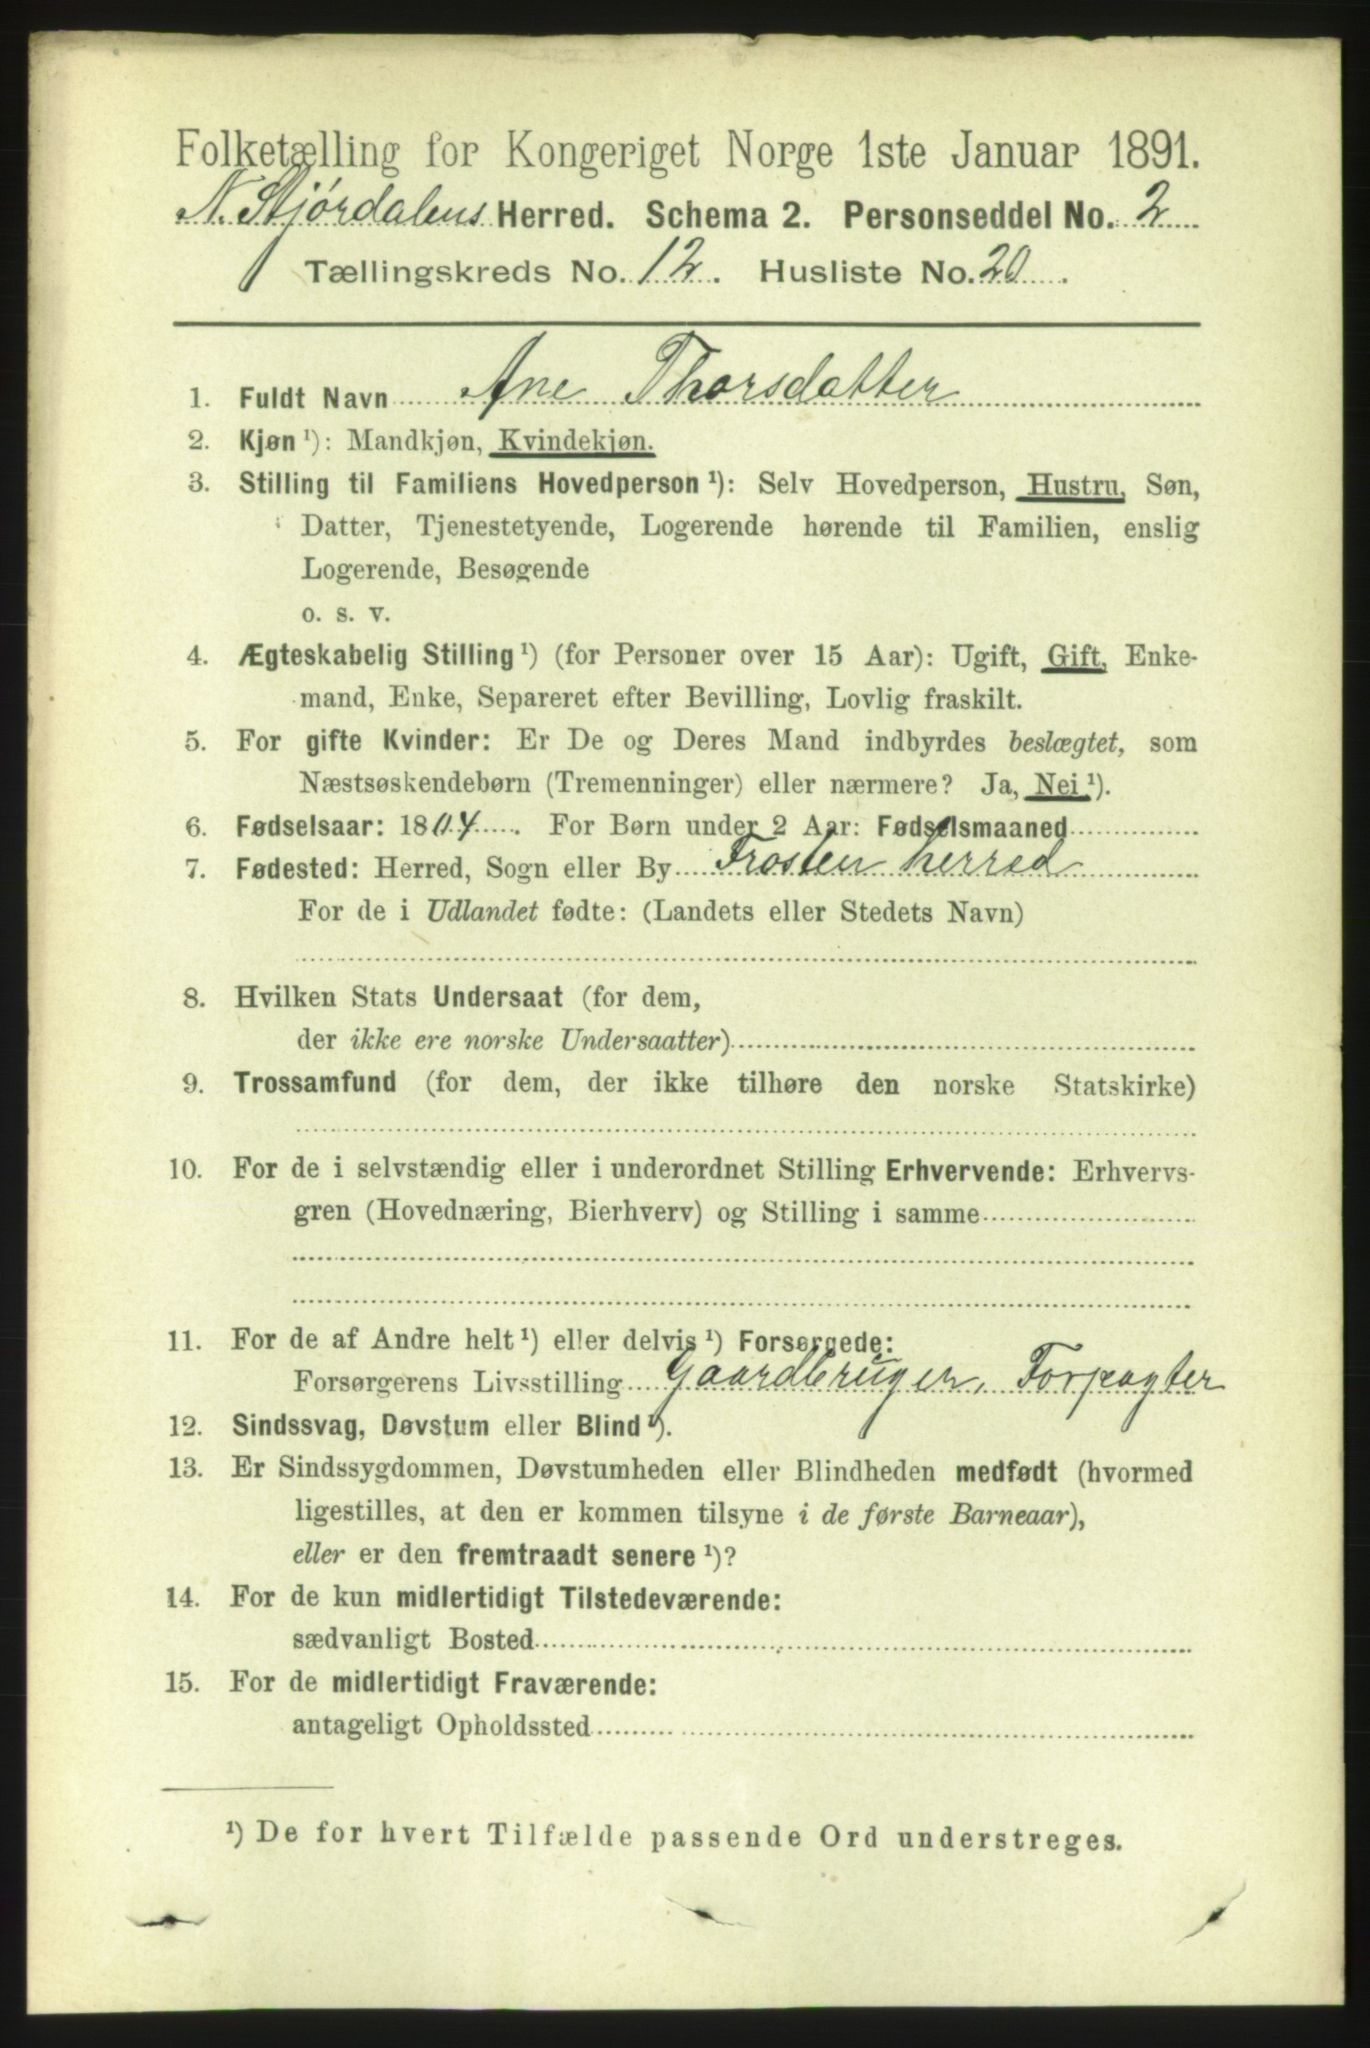 Folketælling for Kongeriget Norge 1ste Januar 1891.
N. Stjördalens Herred. Schema 2. Personseddel No. 2
Tællingskreds No. 12. Husliste No. 20.
1. Fuldt Navn Ane Thorsdatter
2. Kjøn ¹): Mandkjøn, Kvindekjøn.
3. Stilling til Familiens Hovedperson ¹): Selv Hovedperson, Hustru, Søn,
Datter, Tjenestetyende, Logerende hørende til Familien, enslig
Logerende, Besøgende
o. s. v.
4. Ægteskabelig Stilling ¹) (for Personer over 15 Aar): Ugift, Gift, Enke-
mand, Enke, Separeret efter Bevilling, Lovlig fraskilt.
5. For gifte Kvinder: Er De og Deres Mand indbyrdes beslægtet, som
Næstsøskendebørn (Tremenninger) eller nærmere? Ja, Nei ¹).
6. Fødselsaar: 1804. For Børn under 2 Aar: Fødselsmaaned
7. Fødested: Herred, Sogn eller By Frosten herred
For de i Udlandet fødte: (Landets eller Stedets Navn)
8. Hvilken Stats Undersaat (for dem,
der ikke ere norske Undersaatter)
9. Trossamfund (for dem, der ikke tilhøre den norske Statskirke)
10. For de i selvstændig eller i underordnet Stilling Erhvervende: Erhvervs-
gren (Hovednæring, Bierhverv) og Stilling i samme
11. For de af Andre helt ¹) eller delvis ¹) Forsørgede:
Forsørgerens Livsstilling Gaardbruger, Forpagter
12. Sindssvag, Døvstum eller Blind ¹).
13. Er Sindssygdommen, Døvstumheden eller Blindheden medfødt (hvormed
ligestilles, at den er kommen tilsyne i de første Barneaar),
eller er den fremtraadt senere ¹)?
14. For de kun midlertidigt Tilstedeværende:
sædvanligt Bosted
15. For de midlertidigt Fraværende:
antageligt Opholdssted
¹) De for hvert Tilfælde passende Ord understreges.